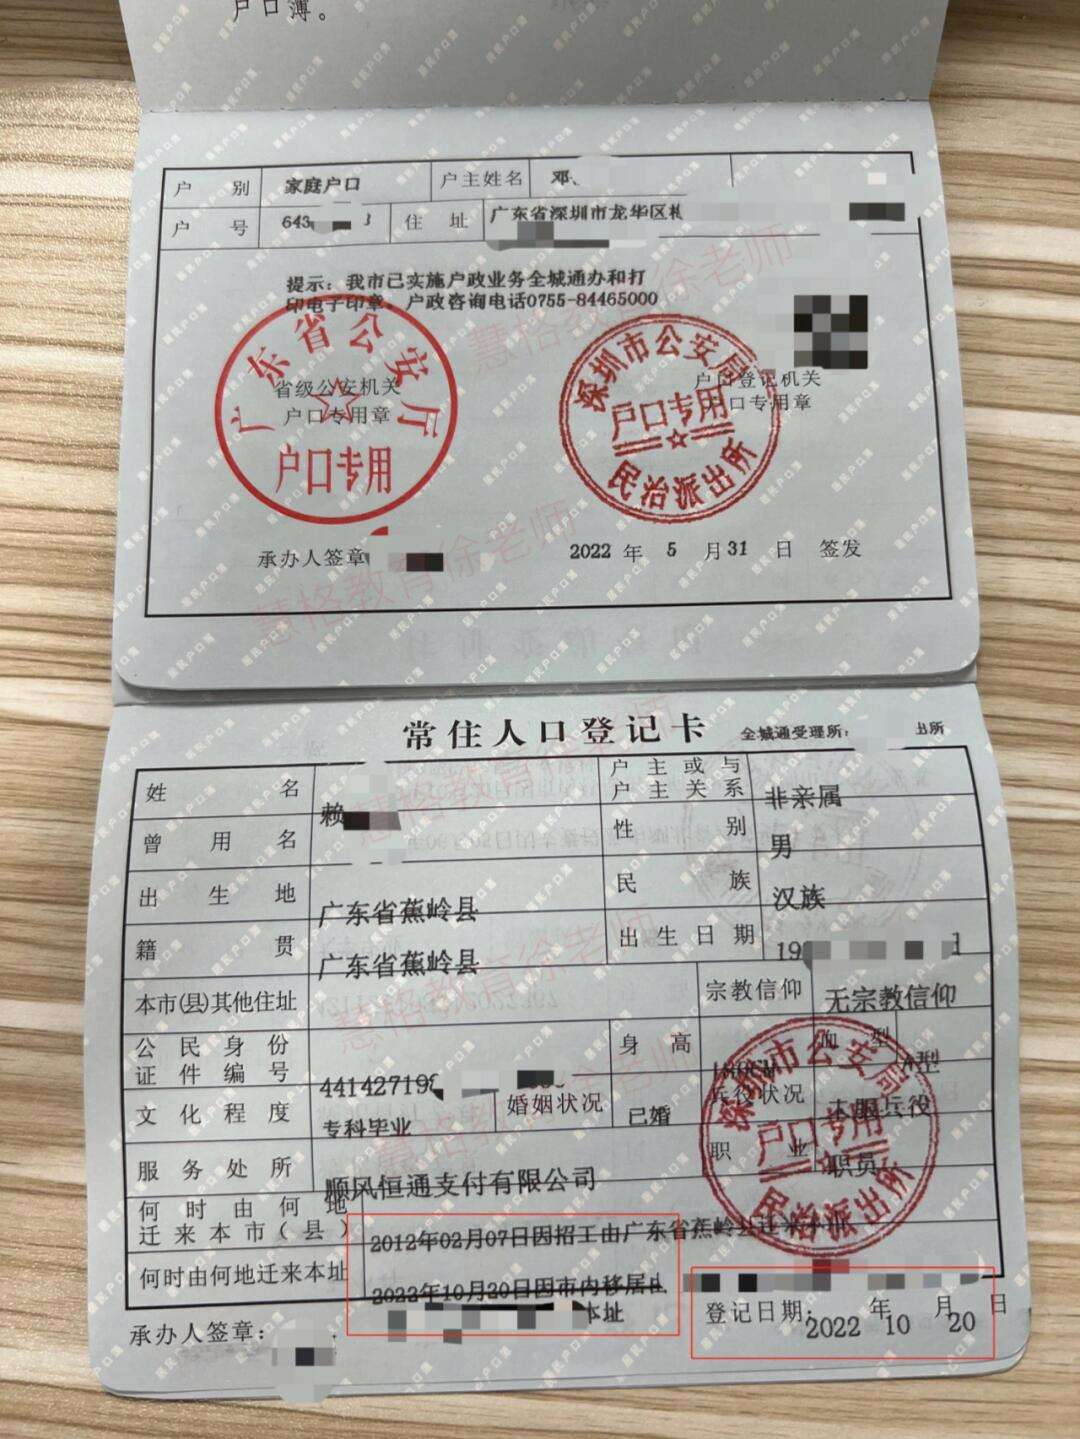 户口薄。
户 别 家庭户口 户主姓名 邓
户 号 643 3 住 址 广东省深圳市龙华区
提示：我市已实施户政业务全城通办和打
印电子印章，户政咨询电话0755-84465000
广东省公安厅
省级公安机关
户口专用章
户口专用
深圳市公安局
户口登记机关
户口专用章
户口专用
民治派出所
承办人签章
2022 年 5 月 31 日 签发
慧格教育徐老师
慧格教育徐老师
常住人口登记卡 全城通受理所： 出所
姓 名 赖 户主或与户主关系 非亲属
曾 用 名 性 别 男
出 生 地 广东省蕉岭县 民 族 汉族
籍 贯 广东省蕉岭县 出生日期 19 1
本市(县)其他住址 宗教信仰 无宗教信仰
公民身份证件编号 441427199 身 高 180CM 血 型 A型
文化程度 专科毕业 婚姻状况 已婚 兵役状况 未服兵役
服务处所 顺风恒通支付有限公司 职 业 职员
何时由何地迁来本市(县) 2012年02月07日因招工由广东省蕉岭县迁来
何时由何地迁来本址 2022年10月20日因市内移居
本址
深圳市公安局
户口专用
民治派出所
承办人签章：
登记日期： 2022 年 10 月 20 日